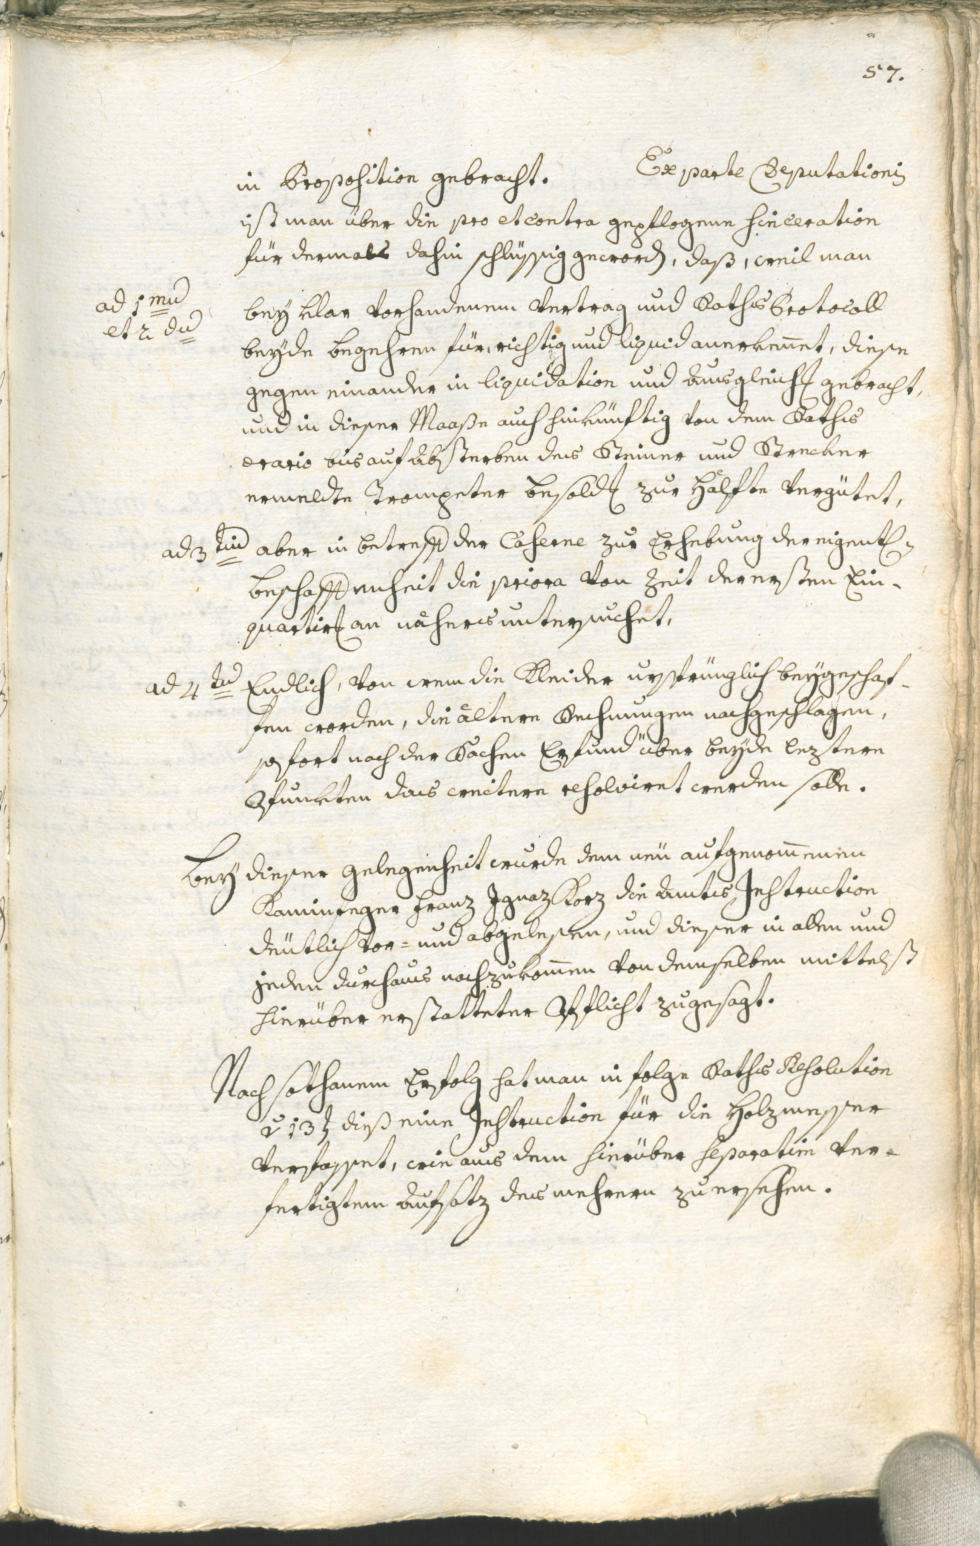 57.
in Proposition gebracht. Ex parte Deputationis
ist man über die pro et contra gepflogene sinceration
für dermals dahin schlüssig geword, daß, weil man
ad 1mū
et 2 dū
bey klar vorhandenem Vertrag und Raths Protocoll
beyde begehren für richtig und liquid anerkennet, diese
gegen einander in liquidation und ausgleich gebracht,
und in dieser Maaße auch hinkünftig von dem Raths
erario bis auf Absterben des Steiner und Strecker
ermeldte Trompeter besold zur Hälfte vergütet,
ad 3 tiū aber in betreff der Caserne zur Erhebung der eigent-
beschaffenheit die priora von Zeit der ersten Ein-
quartir an näheres untersuchet,
ad 4 tū Endlich, von wem die Kleider ursprünglich beygeschaf-
fen worden, die ältere Rechnungen nachgeschlagen,
sofort nach der Sachen Erfund über beyde leztere
Pfunkten das weitere resolvirt werden solle.
Bey dieser gelegenheit wurde dem neu aufgenommenen
Kaminfeger Franz Ignaz Korz die Amts Instruction
deutlich vor- und abgelesen, und dieser in allen und
jeden durchaus nachzukommen von demselben mittelst
hierüber erstatteter Pflicht zugesagt.
Nach sothanem Erfolg hat man in folge Raths Resolution
v 13t dieß eine Instruction für die Holzmesser
verfasset, wie aus dem hierüber separatim ver-
fertigtem Aufsatz des mehrern zu ersehen.